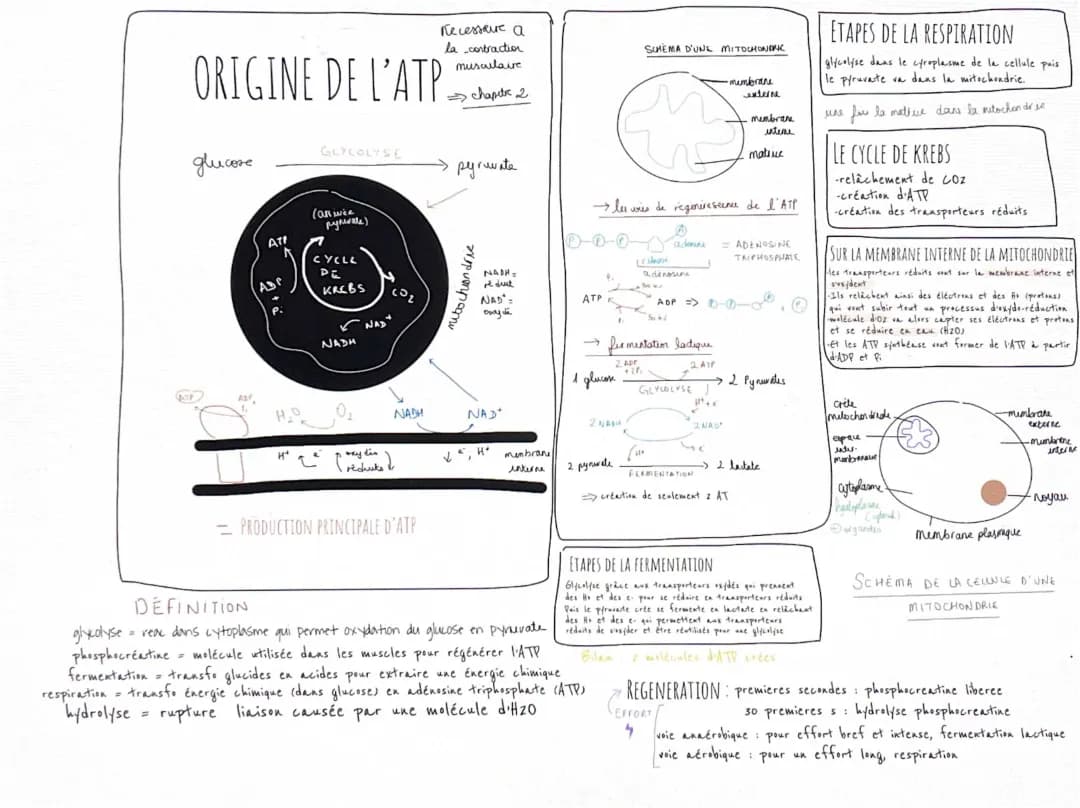 Nécessaire à
la contraction
musculaire
ORIGINE DE L'ATP
⇒ chapitre 2
glucose
GLYCOLYSE
pyruvate
(arrivée
pyruvate)
ATP
CYCLE
DE
KREBS
ADP
+
Pi
CO2
NAD+
NADH
mitochondrie
NADH =
réduit
NAD+ =
oxydé
ATP
ADP,
Pi
H2O
O2
NADH
NAD+
H+
e-
oxydés
réduits
e-, H+
membrane
interne
= PRODUCTION PRINCIPALE D'ATP
DÉFINITION
glycolyse = reac dans cytoplasme qui permet oxydation du glucose en pyruvate
phosphocréatine = molécule utilisée dans les muscles pour régénérer l'ATP
fermentation = transfo glucides en acides pour extraire une énergie chimique
respiration = transfo énergie chimique (dans glucose) en adénosine triphosphate (ATP)
hydrolyse = rupture liaison causée par une molécule d'H2O
SCHÉMA D'UNE MITOCHONDRIE
membrane
externe
membrane
interne
matrice
→ les voies de régénérescence de l'ATP
P-P-P
A
adénine
= ADENOSINE
TRIPHOSPHATE
ribose
adénosine
ATP
ADP ⇒
P
→ fermentation lactique
2 ADP
+ 2Pi
2 ATP
1 glucose
GLYCOLYSE
2 Pyruvates
H+ + e-
2 NADH
2 NAD+
H+
e-
2 pyruvate
FERMENTATION
2 lactate
⇒ création de seulement 2 AT
ETAPES DE LA FERMENTATION
Glycolyse grâce aux transporteurs oxydés qui prennent
des H+ et des e- pour se réduire en transporteurs réduits
Puis le pyruvate crée se fermente en lactate en relâchant
des H+ et des e- qui permettent aux transporteurs
réduits de s'oxyder et être réutilisés pour une glycolyse
Bilan : 2 molécules d'ATP créés
ETAPES DE LA RESPIRATION
glycolyse dans le cytoplasme de la cellule puis
le pyruvate va dans la mitochondrie.
une fois la matrice dans la mitochondrie
LE CYCLE DE KREBS
-relâchement de CO2
-création d'ATP
-création des transporteurs réduits
SUR LA MEMBRANE INTERNE DE LA MITOCHONDRIE
-les transporteurs réduits vont sur la membrane interne et
s'oxydent
-Ils relâchent ainsi des électrons et des H+ (protons)
qui vont subir tout un processus d'oxydo-réduction
-molécule d'O2 va alors capter ses électrons et protons
et se réduire en eau (H2O)
-Et les ATP synthéase vont former de l'ATP à partir
d'ADP et Pi
crête
mitochondriale
espace
inter-
membranaire
cytoplasme
hyaloplasme
organites
membrane
externe
membrane
interne
noyau
membrane plasmique
SCHÉMA DE LA CELLULE D'UNE
MITOCHONDRIE
REGENERATION : premieres secondes : phosphocreatine liberee
EFFORT
30 premieres s : hydrolyse phosphocreatine
voie anaérobique : pour effort bref et intense, fermentation lactique
voie aérobique : pour un effort long, respiration